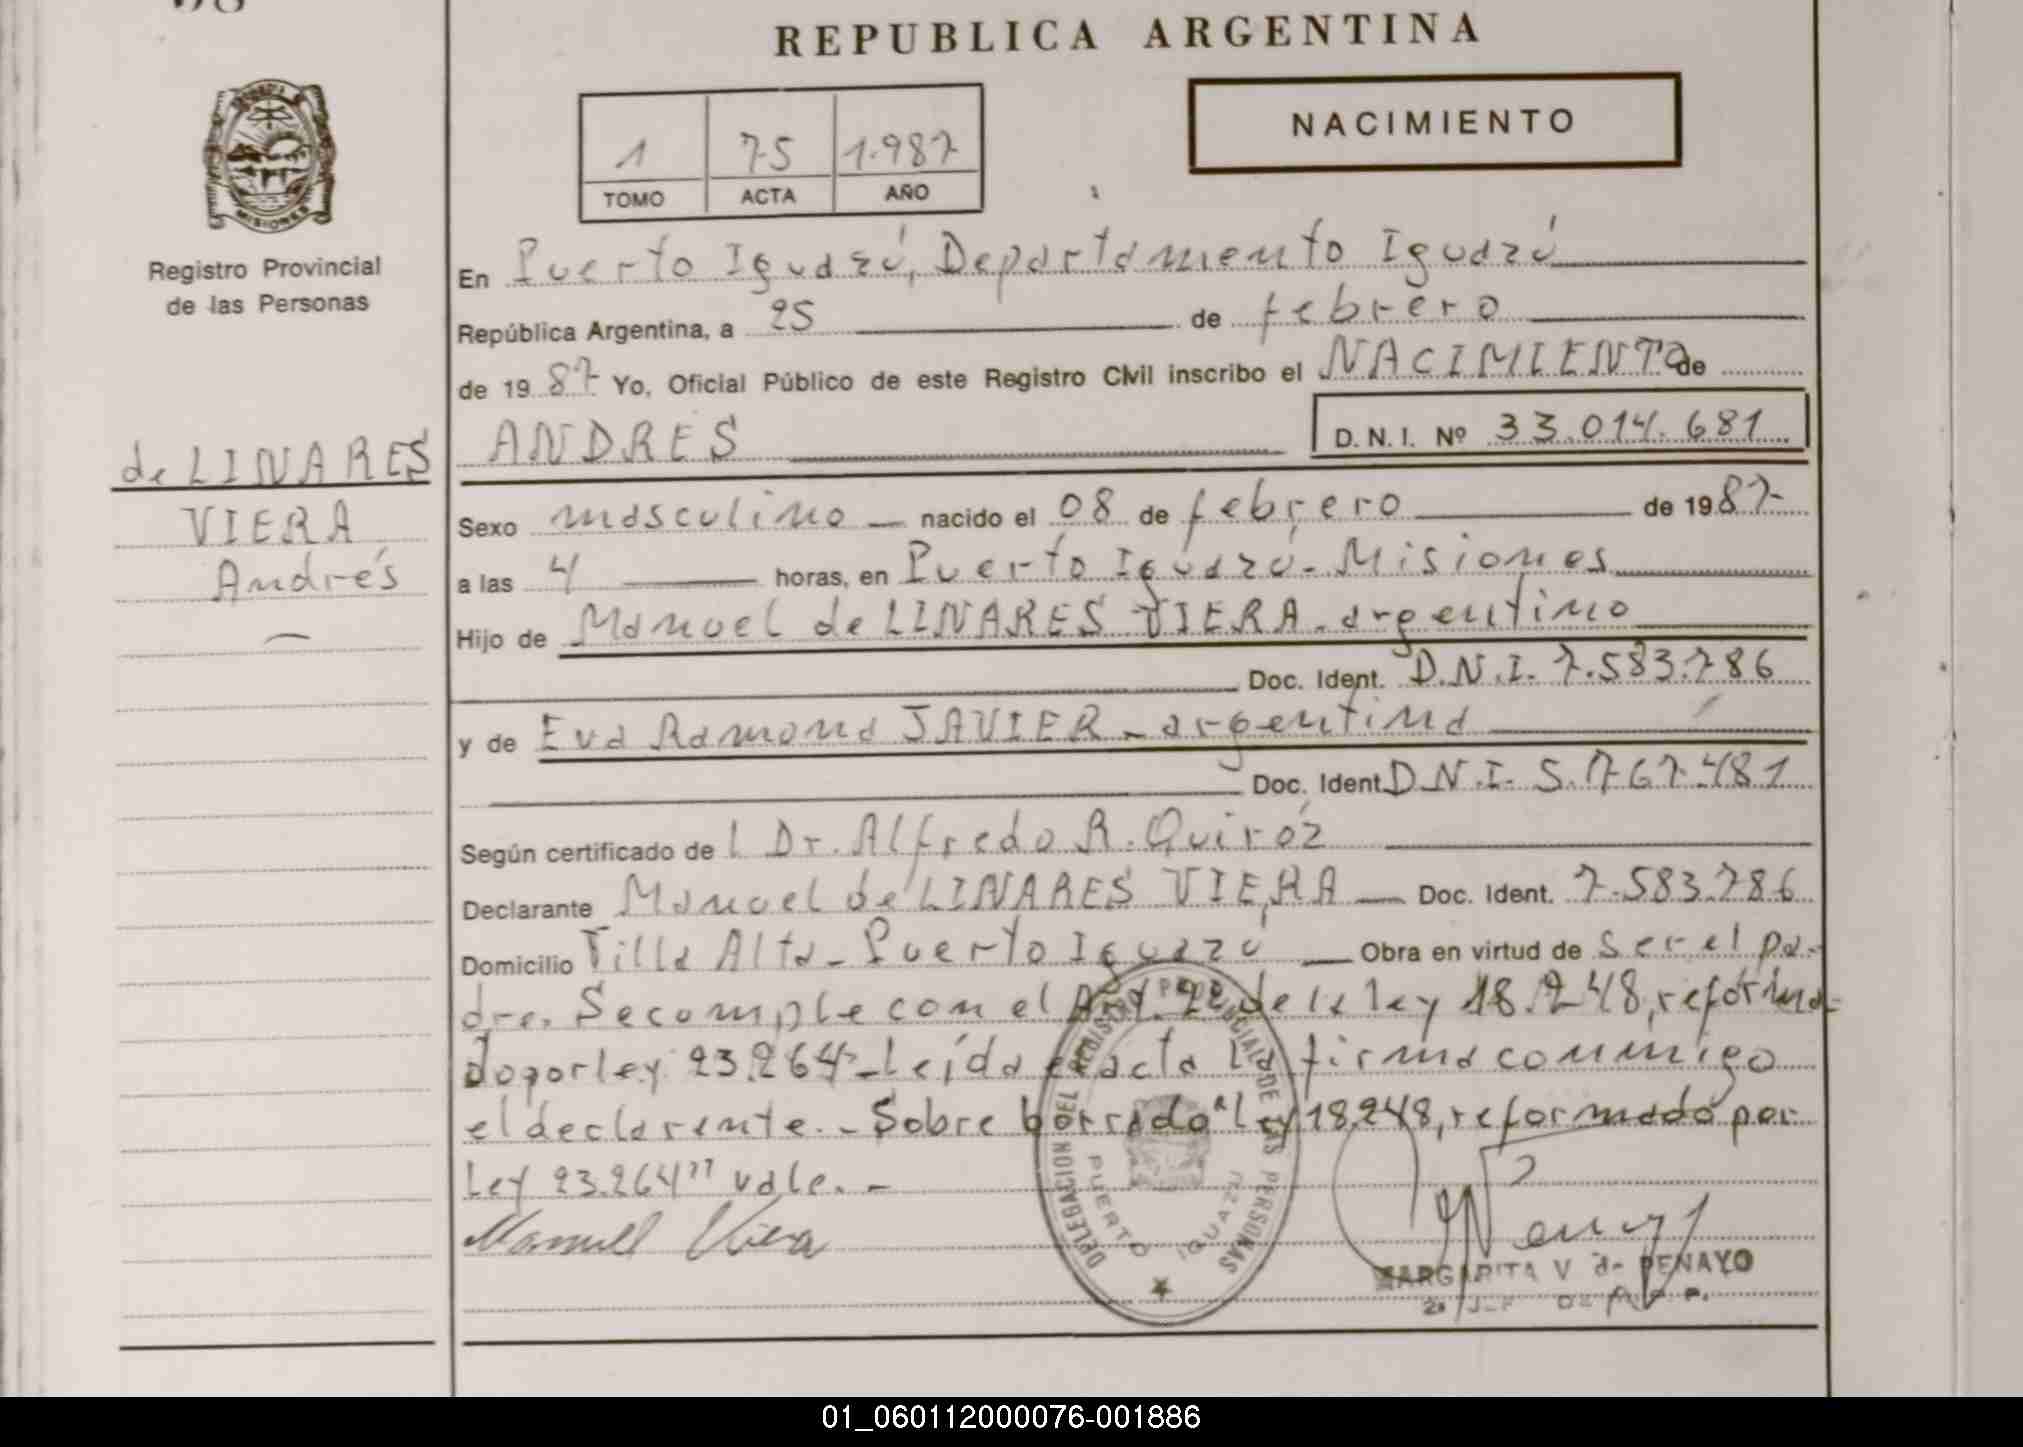 REPUBLICA ARGENTINA
MISIONES
Registro Provincial
de las Personas
1 75 1.987
TOMO ACTA AÑO
NACIMIENTO
En Puerto Iguazú, Departamento Iguazú
República Argentina, a 25 de febrero
de 19 87 Yo, Oficial Público de este Registro Civil inscribo el NACIMIENTO de
ANDRES D.N.I. Nº 33.014.681
de LINARES
VIERA
Andrés
Sexo masculino nacido el 08 de febrero de 1987
a las 4 horas, en Puerto Iguazú - Misiones
Hijo de Manuel de LINARES VIERA - argentino
Doc. Ident. D.N.I. 7.583.786
y de Eva Ramona JAVIER - argentina
Doc. Ident. D.N.I. 5.767.481
Según certificado del Dr. Alfredo R. Quiróz
Declarante Manuel de LINARES VIERA Doc. Ident. 7.583.786
Domicilio Villa Alta - Puerto Iguazú Obra en virtud de ser el pa-
dre. Se cumple con el Art. de la ley 18.248, reforma-
do por ley 23.264 - Leída el acta la firma conmigo
el declarante. - Sobre borrado "Ley 18.248, reformado por
Ley 23.264" vale. -
Manuel Viera
DELEGACION DEL REGISTRO PROVINCIAL DE LAS PERSONAS
PUERTO IGUAZU
MARGARITA V de PENAYO
01_060112000076-001886